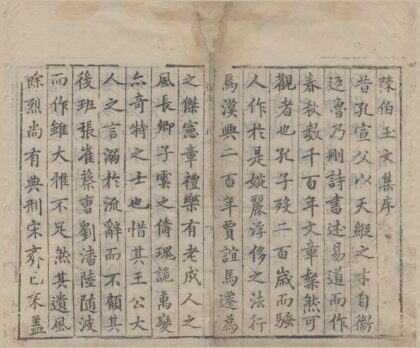 陳伯玉文集序
昔孔宣父以天縱之才自衛
返魯乃刪詩書述易道而作
春秋數千百年文章粲然可
觀者也孔子歿二百歲而騷
人作於是婉麗浮侈之法行
焉漢興二百年賈誼馬遷為
之傑憲章禮樂有老成人之
風長卿子雲之儔瑰詭萬變
亦奇特之士也惜其王公大
人之言溺於流辭而不顧其
後班張崔蔡曹劉潘陸隨波
而作雖大雅不足然其遺風
餘烈尚有典刑宋齊已来蓋